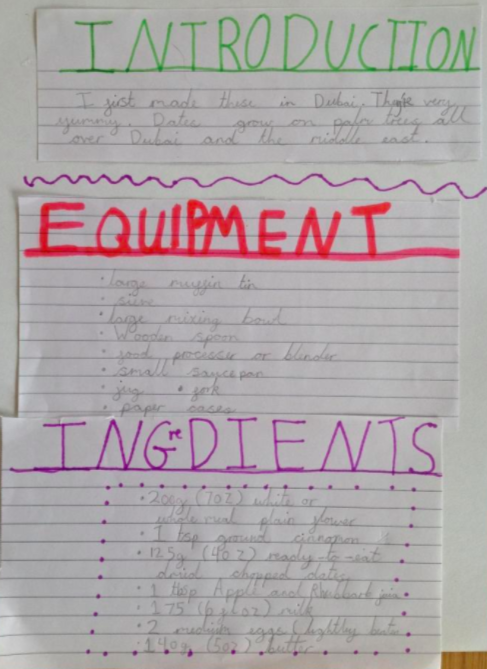 INTRODUCTION
I first made these in Dubai. They're very
yummy. Dates grow on palm trees all
over Dubai and the middle east.
EQUIPMENT
• large muffin tin
• sieve
• large mixing bowl
• Wooden spoon
• food processer or blender
• small saycepan
• jug • fork
• paper cases
INGreDIENTS
• 200g (7oz) white or
plain flower
• 1 tsp ground cinnamon
• 125g (4oz) ready-to-eat
chopped dates
• 1 tbsp Apple and Rhubarb
• 175 (6 fl oz) milk
• 2 medium eggs (lightley
• 140g (5oz) butter